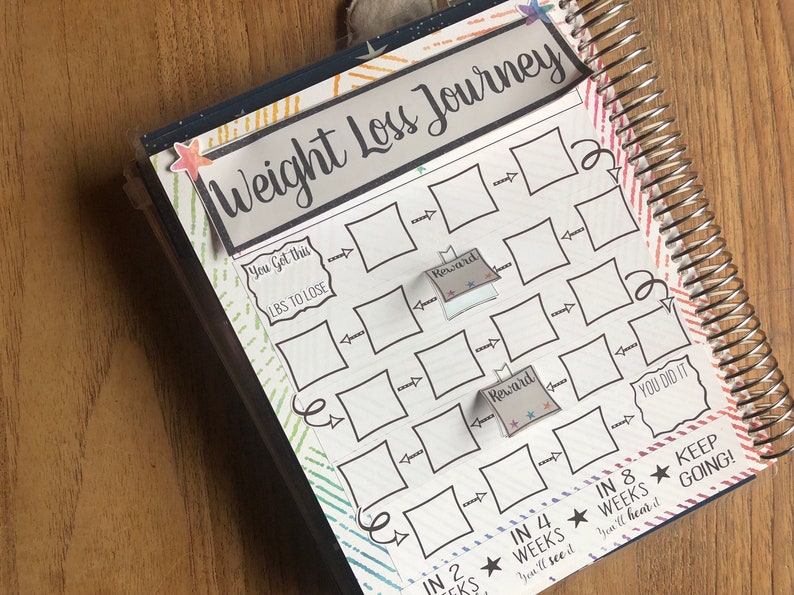 Weight Loss Journey
You Got this
LBS TO LOSE
Reward
Reward
YOU DID IT
IN 2
IN 4
WEEKS
You'll see it
IN 8
WEEKS
You'll hear it
KEEP
GOING!